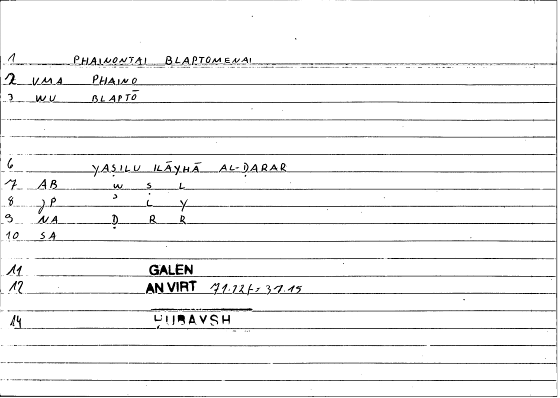 1 PHAINONTAI BLAPTOMENAI
2 VMA PHAINO
3 WU BLAPTŌ
6 YAṢILU ILĀYHĀ AL-ḌARAR
7 AB w ṣ L
8 JP ʾ L Y
9 NA Ḍ R R
10 SA
11 GALEN
12 AN VIRT 71.12f = 37.15
14 ḤUBAYSH